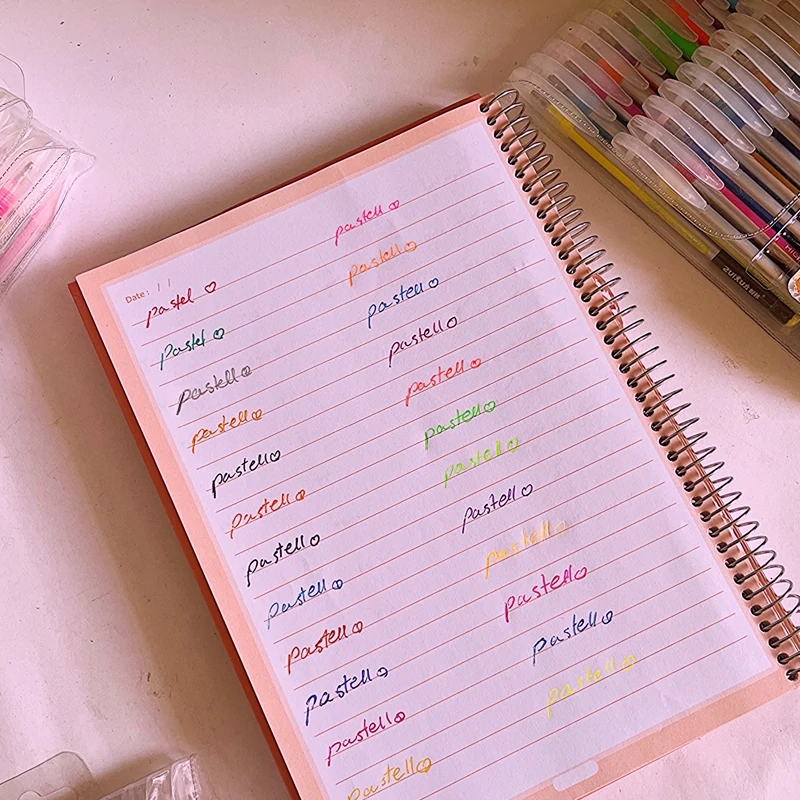 Date: / /
pastel ♡ pastell♡
pastel ♡ pastell♡
pastell♡ pastell♡
pastell♡ pastell♡
pastell♡ pastell♡
pastell♡ pastell♡
pastell♡ pastell♡
pastell♡ pastell♡
pastell♡ pastell♡
pastell♡ pastell♡
pastell♡ pastell♡
pastell♡ pastell♡